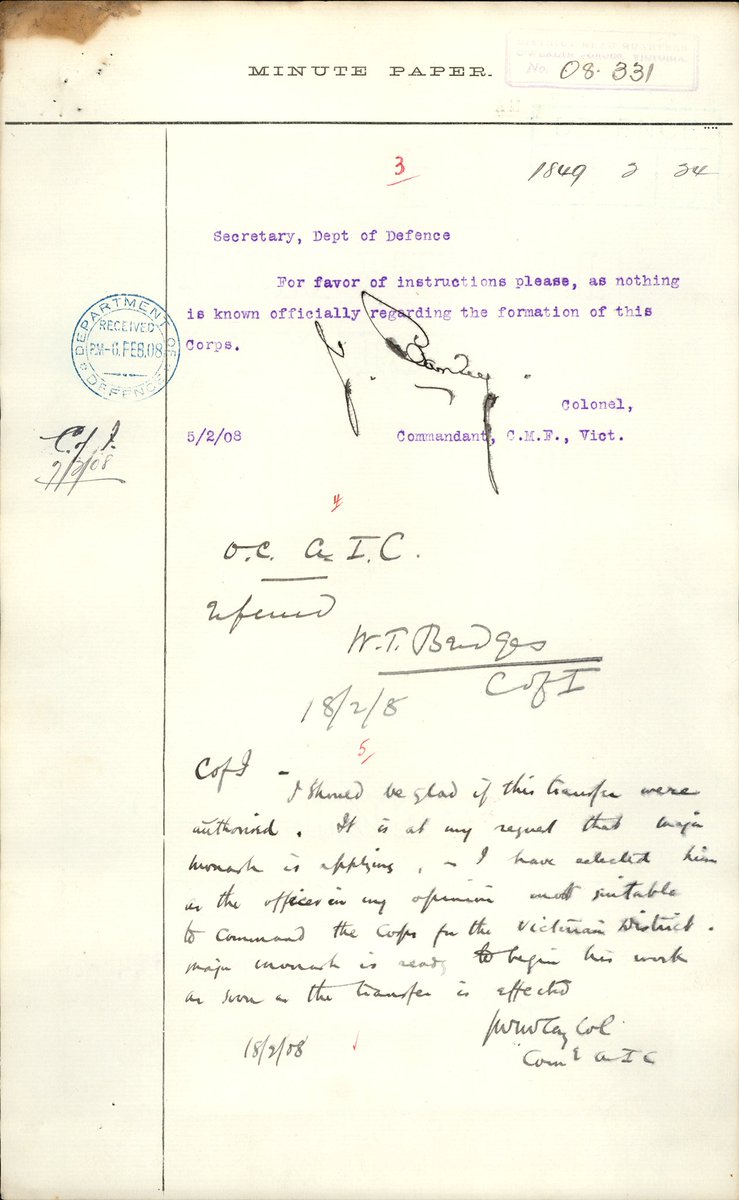 DISTRICT HEAD QUARTERS
No. 08.331
MINUTE PAPER.
3
1849 2 24
Secretary, Dept of Defence
For favor of instructions please, as nothing
is known officially regarding the formation of this
Corps.
DEPARTMENT OF DEFENCE
RECEIVED
PM-6.FEB.08
Colonel,
5/2/08 Commandant, C.M.F., Vict.
C of I.
7/2/08
4
O.C. A.I.C.
Referred
W.T. Bridges
C of I
18/2/8
5
C of I –
I should be glad if this transfer were
authorised. It is at my request that Major
Monash is applying. – I have selected him
as the officer in my opinion most suitable
to command the Corps for the Victorian District.
Major Monash is ready to begin his work
as soon as the transfer is effected
JW McCay Col
18/2/08
Comg A I C